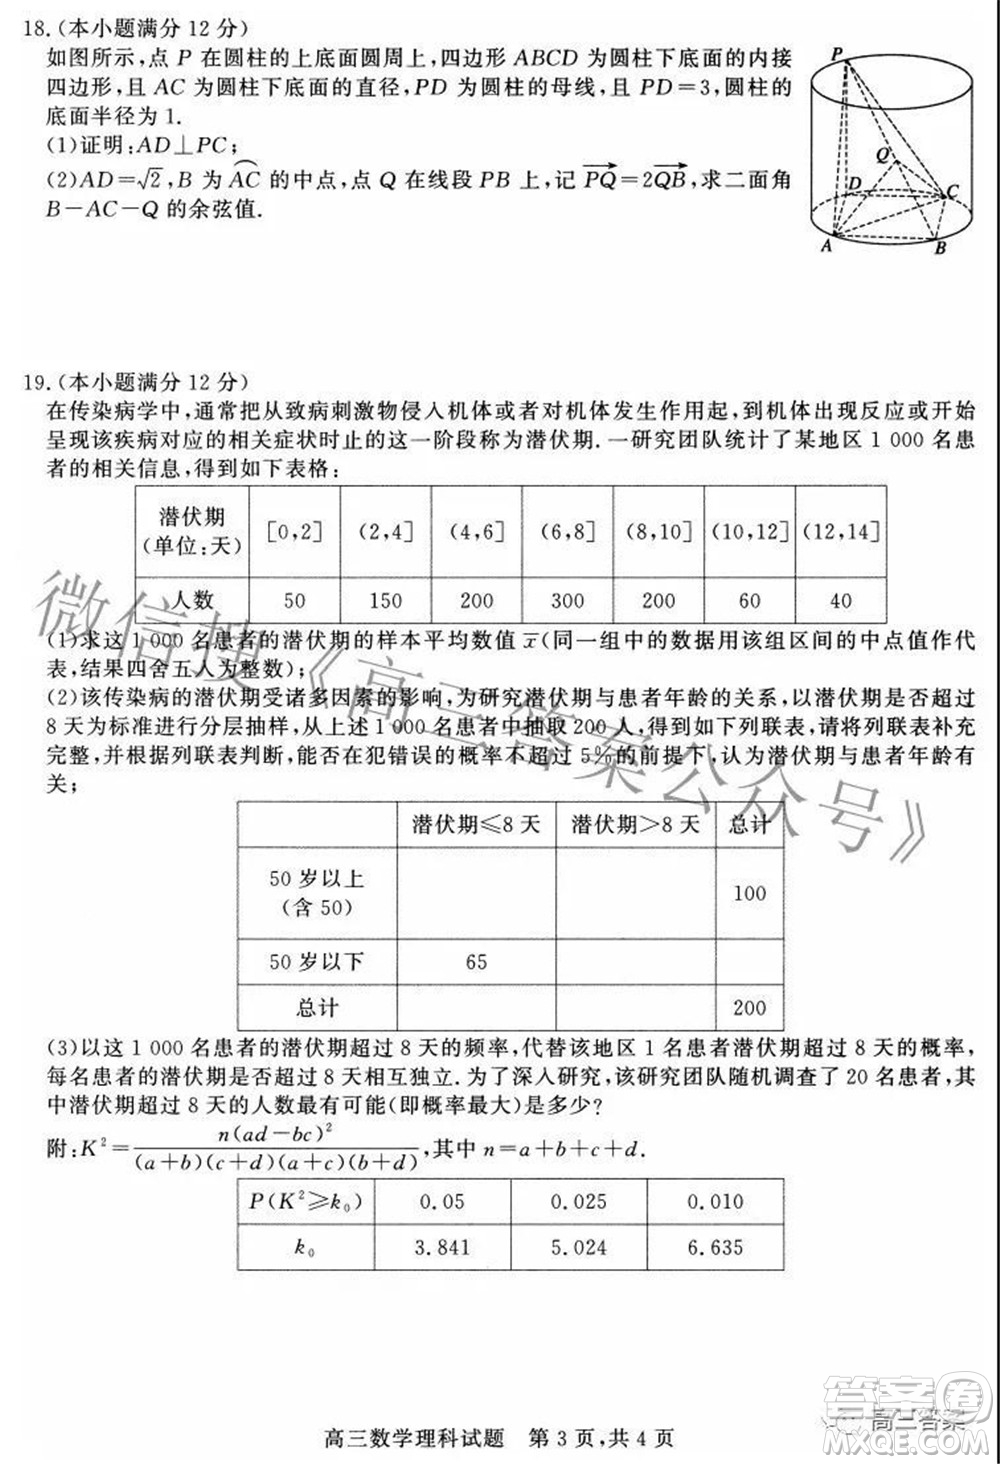 18.(本小题满分 12 分)
如图所示,点 P 在圆柱的上底面圆周上,四边形 ABCD 为圆柱下底面的内接
四边形,且 AC 为圆柱下底面的直径,PD 为圆柱的母线,且 PD=3,圆柱的
底面半径为 1.
(1)证明:AD⊥PC;
(2)AD=√2,B 为 A͡C 的中点,点 Q 在线段 PB 上,记 P͢Q=2Q͢B,求二面角
B-AC-Q 的余弦值.
P
Q
D
C
A
B
19.(本小题满分 12 分)
在传染病学中,通常把从致病刺激物侵入机体或者对机体发生作用起,到机体出现反应或开始
呈现该疾病对应的相关症状时止的这一阶段称为潜伏期.一研究团队统计了某地区 1 000 名患
者的相关信息,得到如下表格:
潜伏期(单位:天) [0,2] (2,4] (4,6] (6,8] (8,10] (10,12] (12,14]
人数 50 150 200 300 200 60 40
(1)求这 1 000 名患者的潜伏期的样本平均数值 x̄(同一组中的数据用该组区间的中点值作代
表,结果四舍五人为整数);
(2)该传染病的潜伏期受诸多因素的影响,为研究潜伏期与患者年龄的关系,以潜伏期是否超过
8 天为标准进行分层抽样,从上述 1 000 名患者中抽取 200 人,得到如下列联表,请将列联表补充
完整,并根据列联表判断,能否在犯错误的概率不超过 5%的前提下,认为潜伏期与患者年龄有
关;
潜伏期≤8 天 潜伏期>8 天 总计
50 岁以上(含 50) 100
50 岁以下 65
总计 200
(3)以这 1 000 名患者的潜伏期超过 8 天的频率,代替该地区 1 名患者潜伏期超过 8 天的概率,
每名患者的潜伏期是否超过 8 天相互独立.为了深入研究,该研究团队随机调查了 20 名患者,其
中潜伏期超过 8 天的人数最有可能(即概率最大)是多少?
附:K²=n(ad-bc)²/(a+b)(c+d)(a+c)(b+d),其中 n=a+b+c+d.
P(K²≥k₀) 0.05 0.025 0.010
k₀ 3.841 5.024 6.635
微信搜《高三答案公众号》
高三数学理科试题 第 3 页,共 4 页
高三答案
答案圈
MXQE.COM